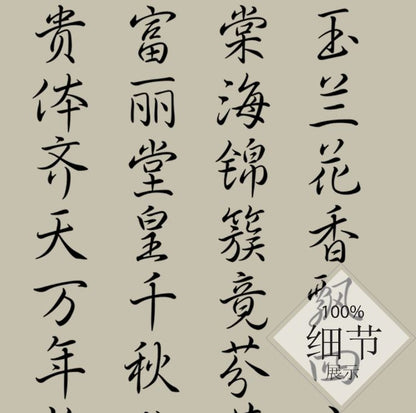 玉兰花香飘四
棠海锦簇竟芬
富丽堂皇千秋
贵体齐天万年
100%
细节
展示